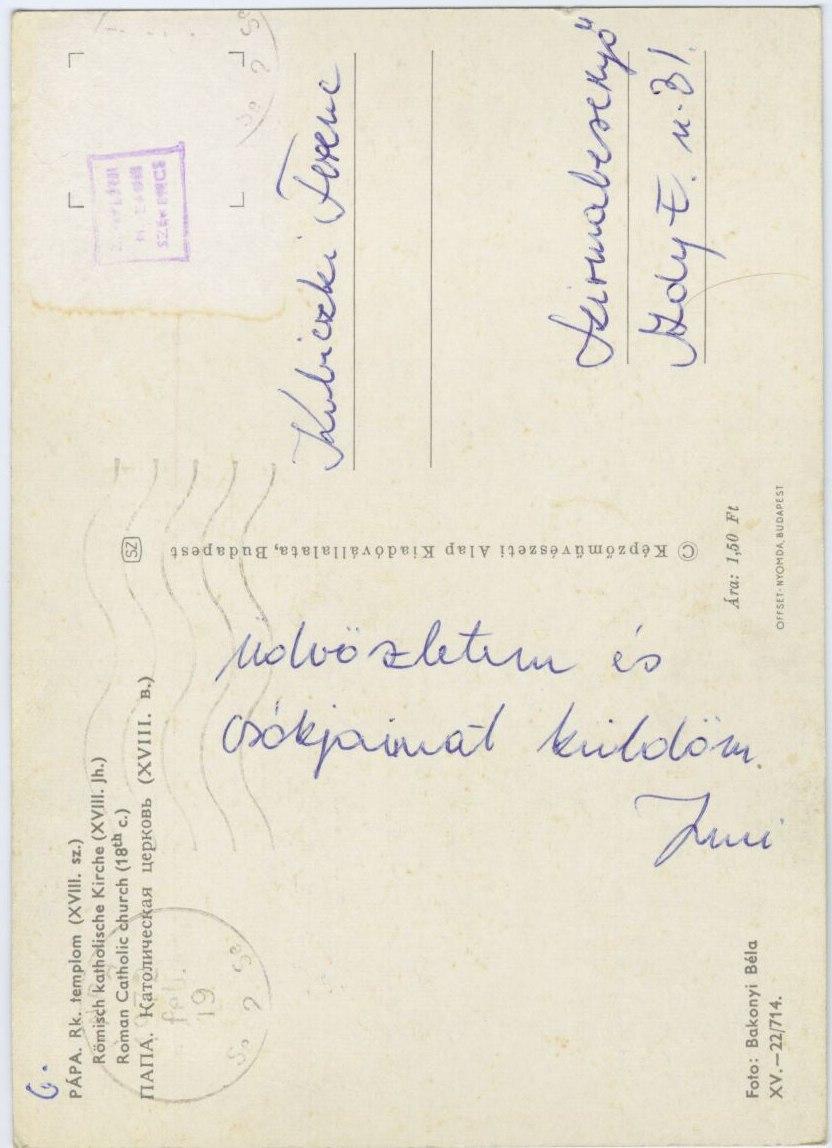 6.
PÁPA. Rk. templom (XVIII. sz.)
Römisch katholische Kirche (XVIII. Jh.)
Roman Catholic church (18th c.)
ПАПА. Католическая церковь (XVIII. в.)
feb.
19
üdvözletem és
csókjaimat küldöm.
Foto: Bakonyi Béla
XV.—22/714.
SZ
© Képzőművészeti Alap Kiadóvállalata, Budapest
Ára: 1,50 Ft
OFFSET-NYOMDA, BUDAPEST
Kubiczki Ferenc
Szirmabesenyő
Ady E. u. 31.